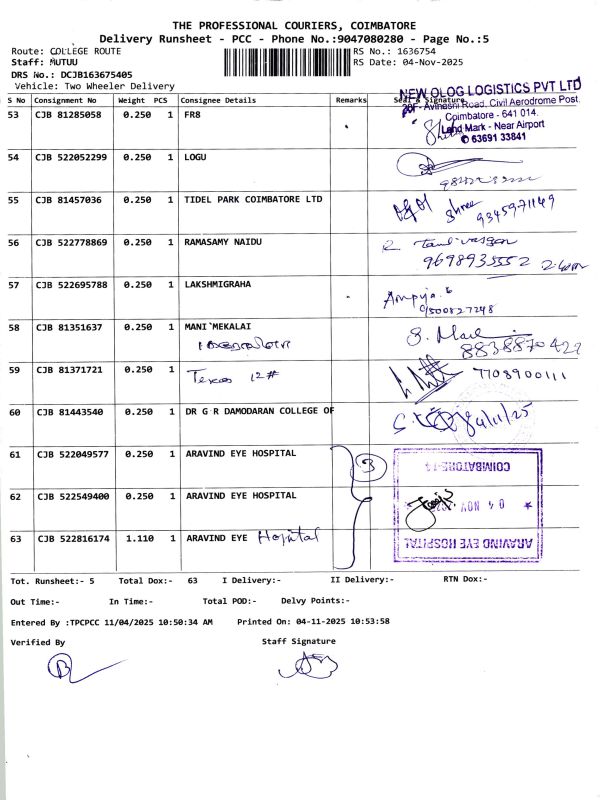 THE PROFESSIONAL COURIERS, COIMBATORE
Delivery Runsheet - PCC - Phone No.:9047080280 - Page No.:5
Route: COLLEGE ROUTE RS No.: 1636754
Staff: MUTUU RS Date: 04-Nov-2025
DRS No.: DCJB163675405
Vehicle: Two Wheeler Delivery
NEW OLOG LOGISTICS PVT LTD
S No Consignment No Weight PCS Consignee Details Remarks Seal & Signature
Avinashi Road, Civil Aerodrome Post,
Coimbatore - 641 014.
Land Mark - Near Airport
✆ 63691 33841
53 CJB 81285058 0.250 1 FR8
54 CJB 522052299 0.250 1 LOGU
55 CJB 81457036 0.250 1 TIDEL PARK COIMBATORE LTD Shree 9345971149
56 CJB 522778869 0.250 1 RAMASAMY NAIDU
9698935552
57 CJB 522695788 0.250 1 LAKSHMIGRAHA
9500827248
58 CJB 81351637 0.250 1 MANI MEKALAI
59 CJB 81371721 0.250 1 Texas 12# 7708900111
60 CJB 81443540 0.250 1 DR G R DAMODARAN COLLEGE OF 4/11/25
61 CJB 522049577 0.250 1 ARAVIND EYE HOSPITAL 3 COIMBATORE-14
62 CJB 522549400 0.250 1 ARAVIND EYE HOSPITAL * 04 NOV
63 CJB 522816174 1.110 1 ARAVIND EYE Hospital ARAVIND EYE HOSPITAL
Tot. Runsheet:- 5 Total Dox:- 63 I Delivery:- II Delivery:- RTN Dox:-
Out Time:- In Time:- Total POD:- Delvy Points:-
Entered By :TPCPCC 11/04/2025 10:50:34 AM Printed On: 04-11-2025 10:53:58
Verified By Staff Signature